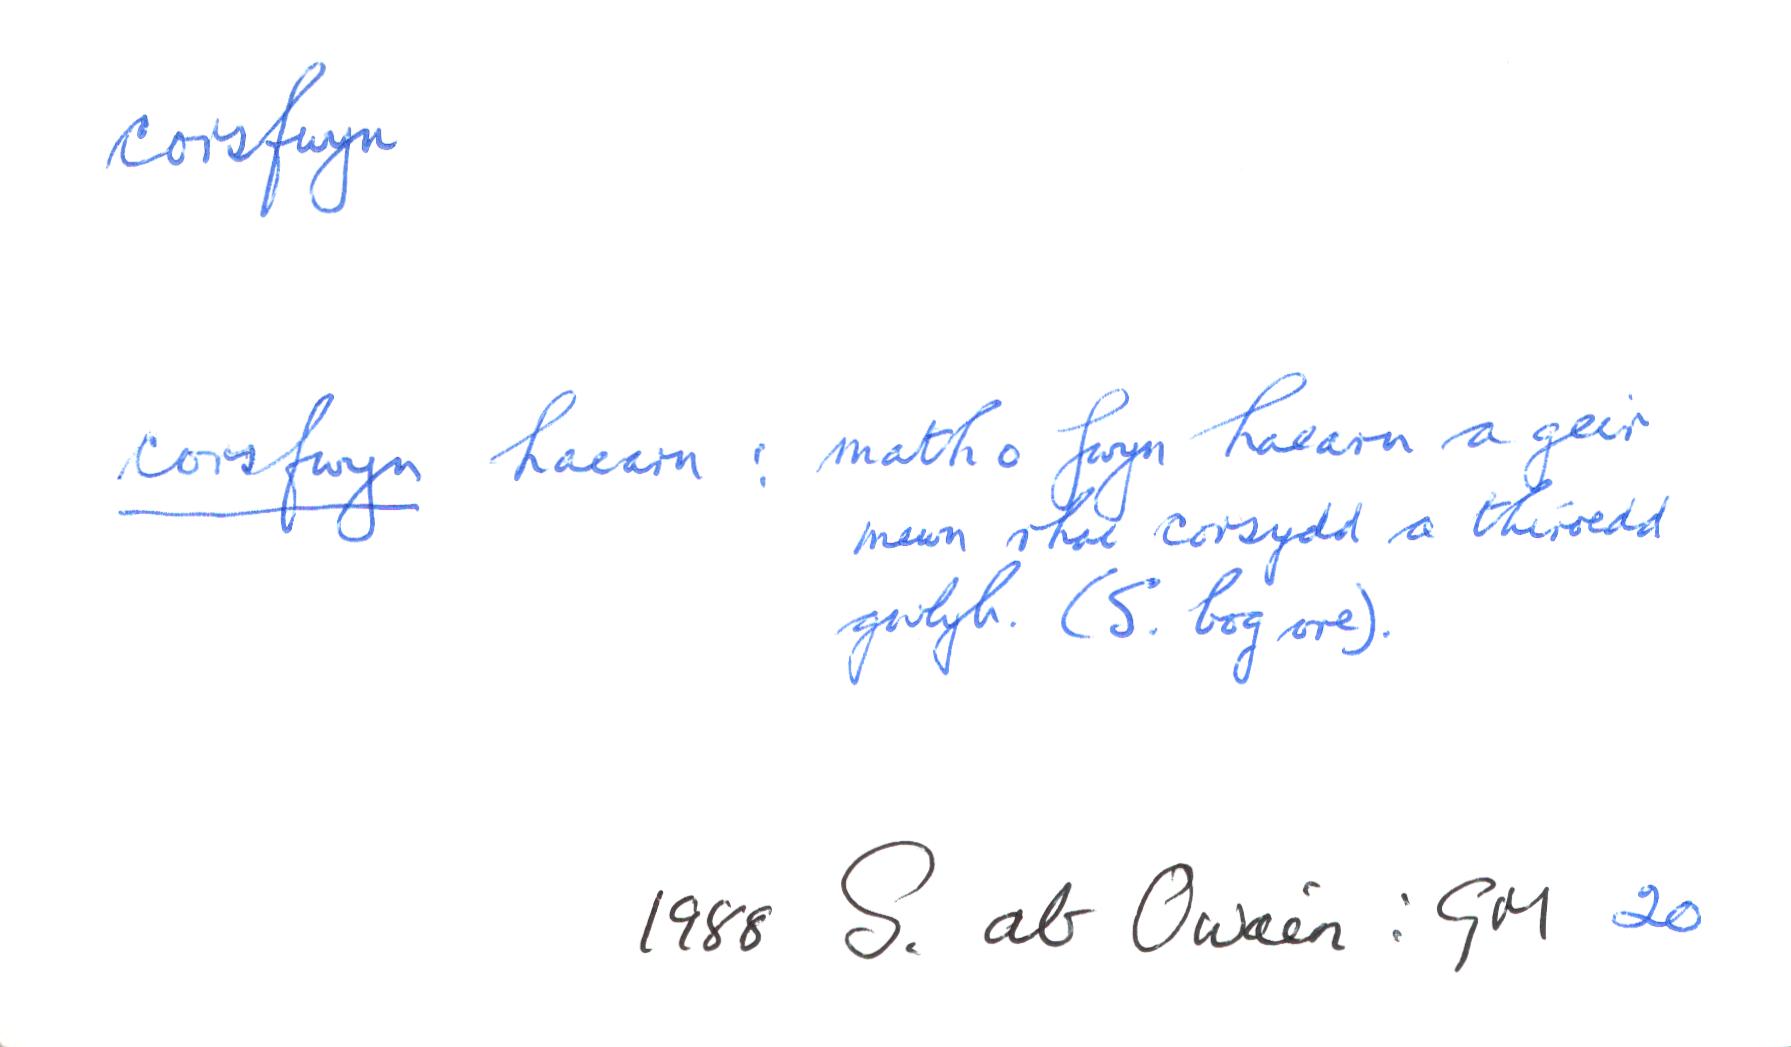 corsfwyn
corsfwyn haearn : math o fwyn haearn a geir
mewn rhai corsydd a thiroedd
gwlyb. (S. bog ore).
1988 S. ab Owain : GM 20